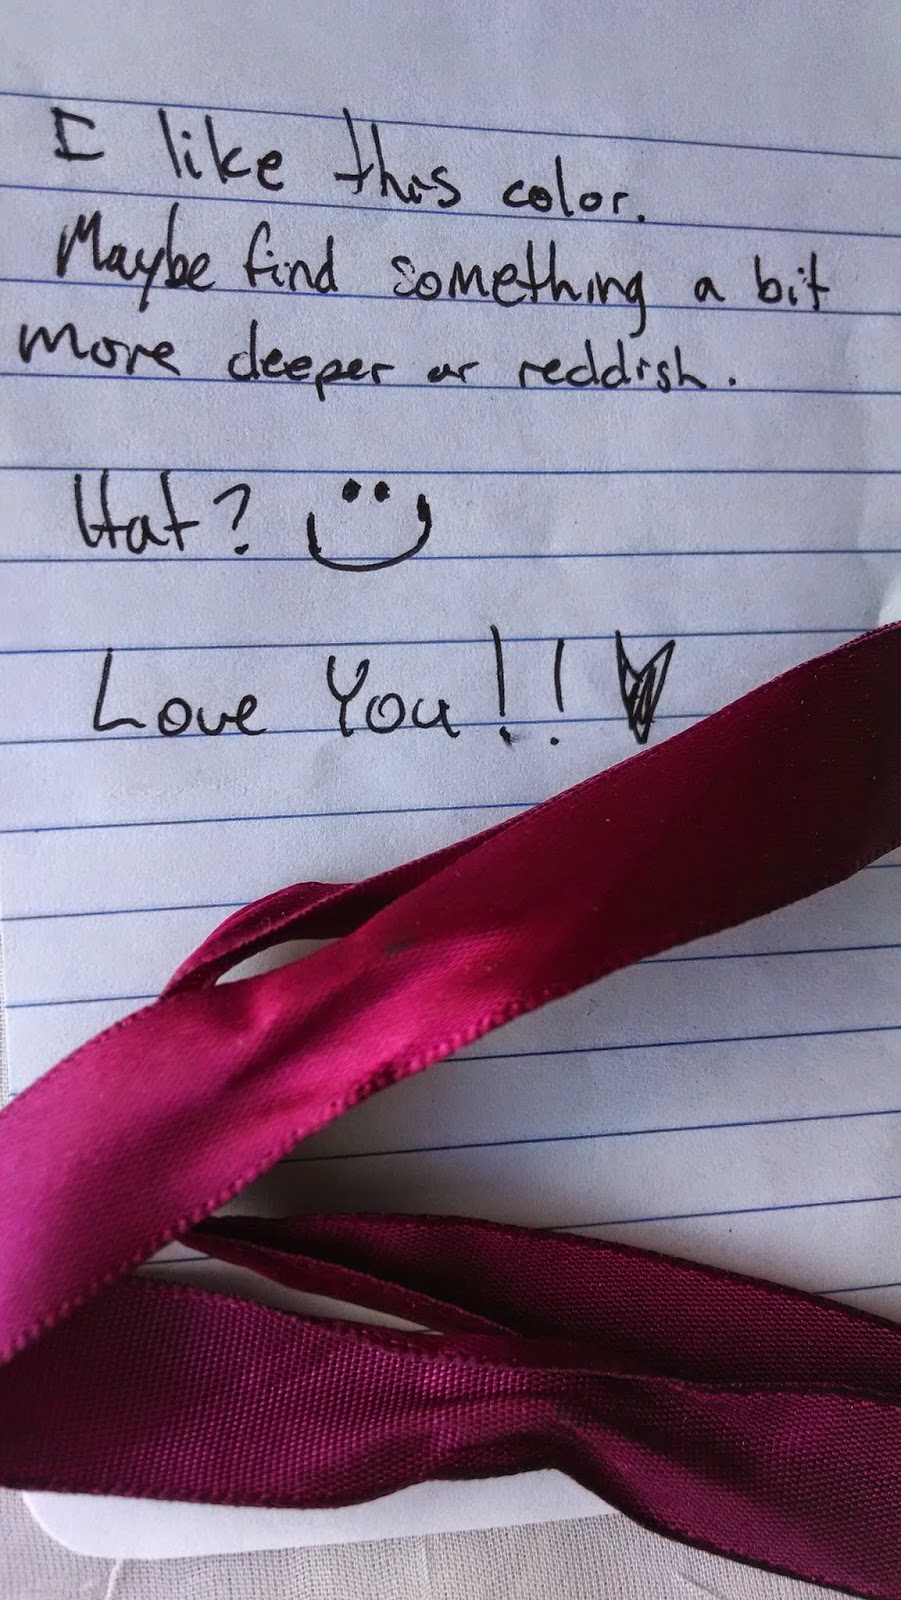 I like this color.
Maybe find something a bit
more deeper or reddish.
Hat?
Love You!!